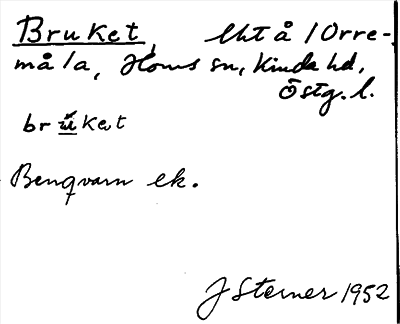 Bruket, Utå /Orre-
måla, Horns sn, Kinda hd,
Östg. l.
brúket
Bengvarn ek.
J Sterner 1952